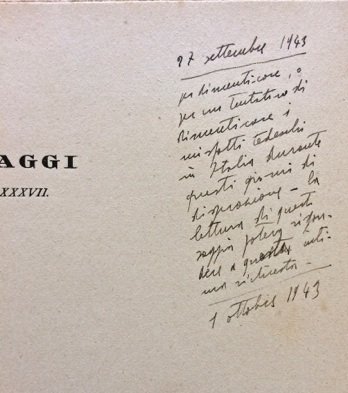 AGGI
XXXVII.
27 settembre 1943
per dimenticare, o
per un tentativo di
dimenticare i
misfatti tedeschi
in Italia durante
questi giorni di
disperazione – la
lettura di questi
saggi poteva rispon-
dere a questa inti-
ma richiesta –
1 ottobre 1943